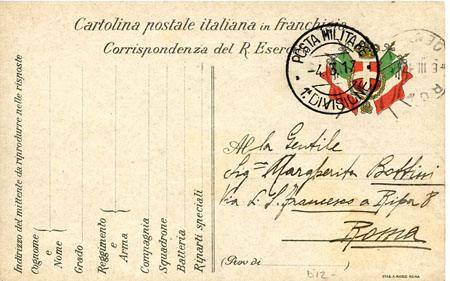 Cartolina postale italiana in franchigia
Corrispondenza del R. Esercito
POSTA MILITARE
-4.3.17
1ª DIVISIONE
Alla Gentile
Sig.na Margherita Bottini
Via di S. Francesco a Ripa 8
Roma
(Prov di
Indirizzo del mittente da riprodurre nelle risposte
Cognome
e
Nome
Grado
Reggimento
e
Arma
Compagnia
Squadrone
Batteria
Riparti speciali